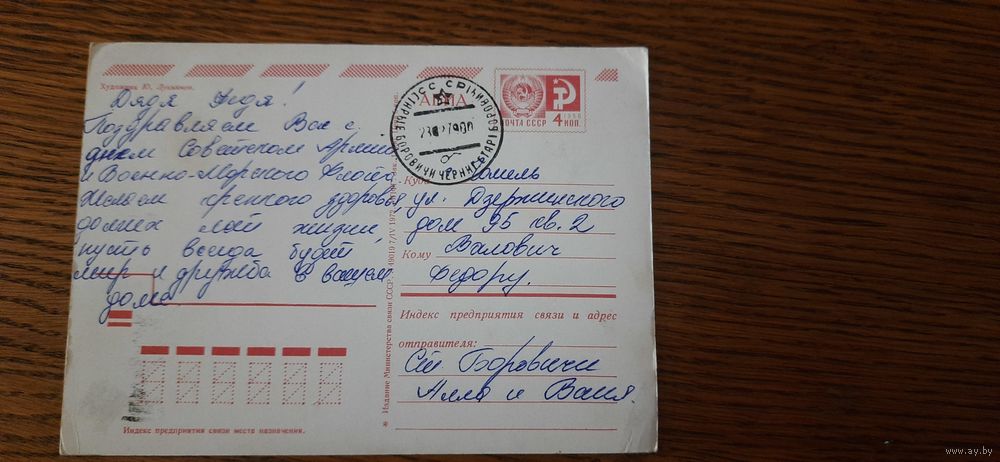 Художник Ю. Лукьянов.
Дядя Федя!
Поздравляем Вас с
днем Советской Армии
и Военно-Морского Флота
желаем крепкого здоровья
долгих лет жизни,
пусть всегда будет
мир и дружба в вашем
доме.
АВИА
ПОЧТА СССР
1966
4 КОП.
СССР
СТАРЫЕ БОРОВИЧИ ЧЕРНИГ.
Куда г. Гомель
ул. Дзержинского
дом 95 кв. 2
Кому Валович
Федору.
Индекс предприятия связи и адрес
отправителя:
Ст Боровичи
Алла и Ваня.
Индекс предприятия связи места назначения.
Издание Министерства связи СССР.
www.ay.by